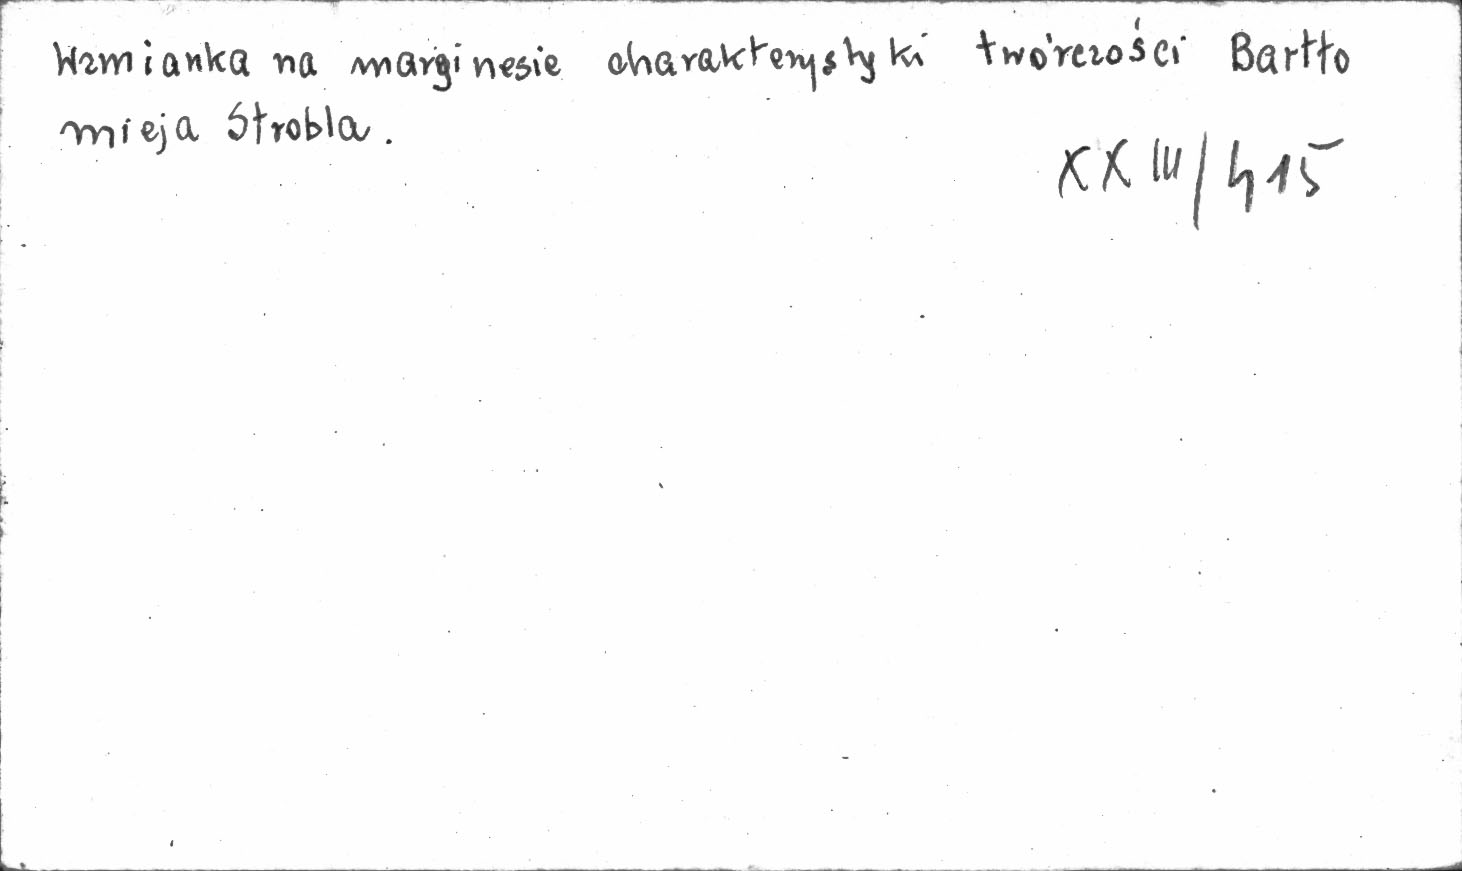 Wzmianka na marginesie charakterystyki twórczości Bartło
mieja Strobla.
XXIII/415